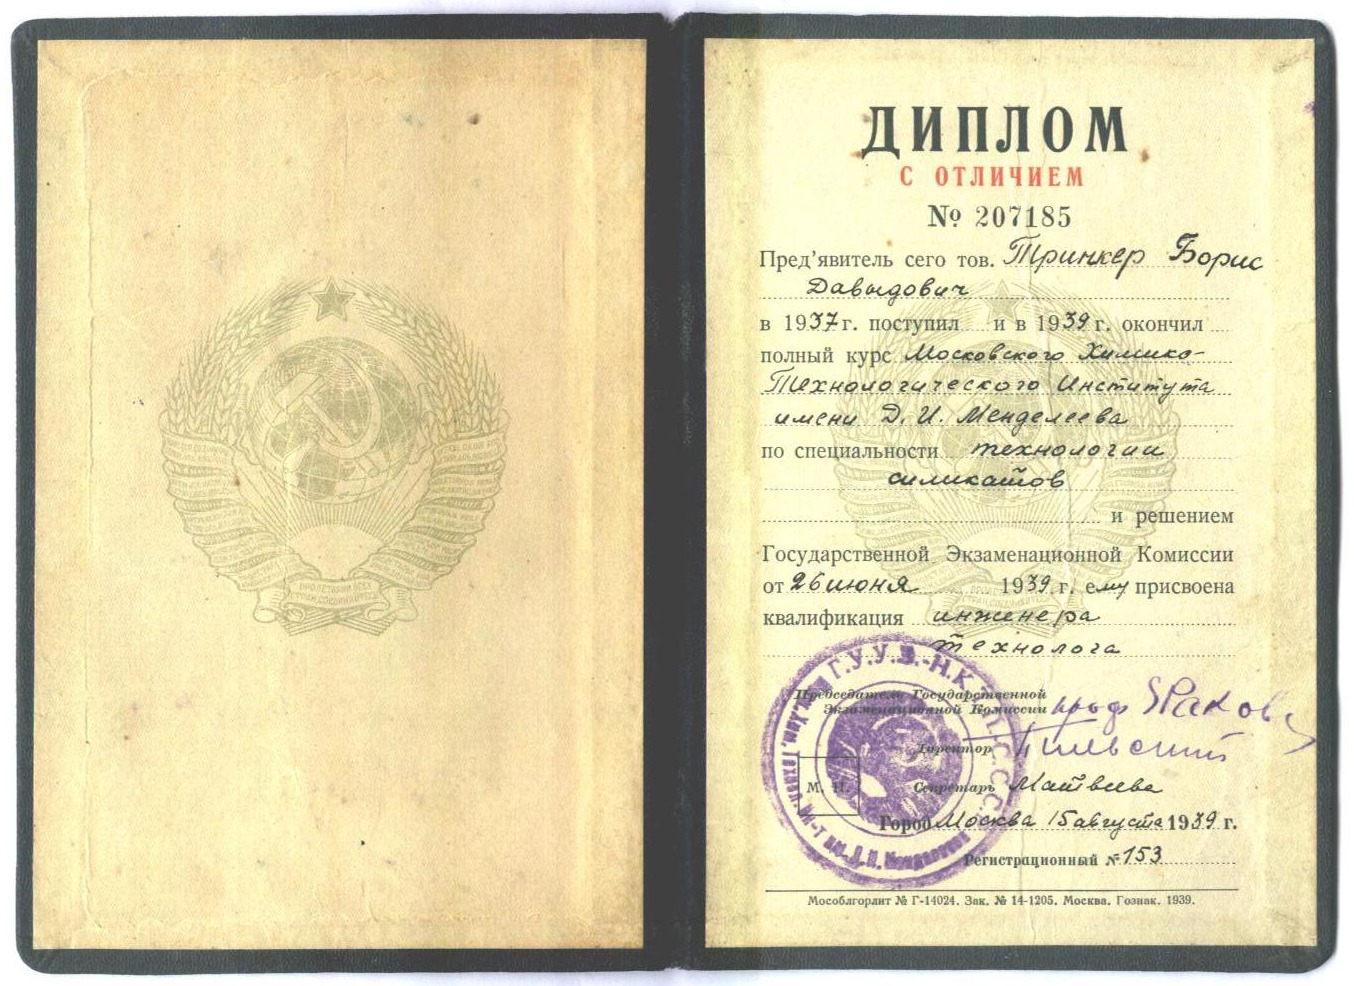 ДИПЛОМ
С ОТЛИЧИЕМ
№ 207185
Пред'явитель сего тов. Тринкер Борис
Давыдович
в 1937 г. поступил и в 1939 г. окончил
полный курс Московского Химико-
Технологического Института
имени Д. И. Менделеева
по специальности технологии
силикатов
и решением
Государственной Экзаменационной Комиссии
от 26 июня 1939 г. ему присвоена
квалификация инженера
технолога
Председатель Государственной
Экзаменационной Комиссии проф
Директор
М. П.
Секретарь Матвеева
Город Москва 15 августа 1939 г.
Регистрационный № 153
Мособлгорлит № Г-14024. Зак. № 14-1205. Москва. Гознак. 1939.